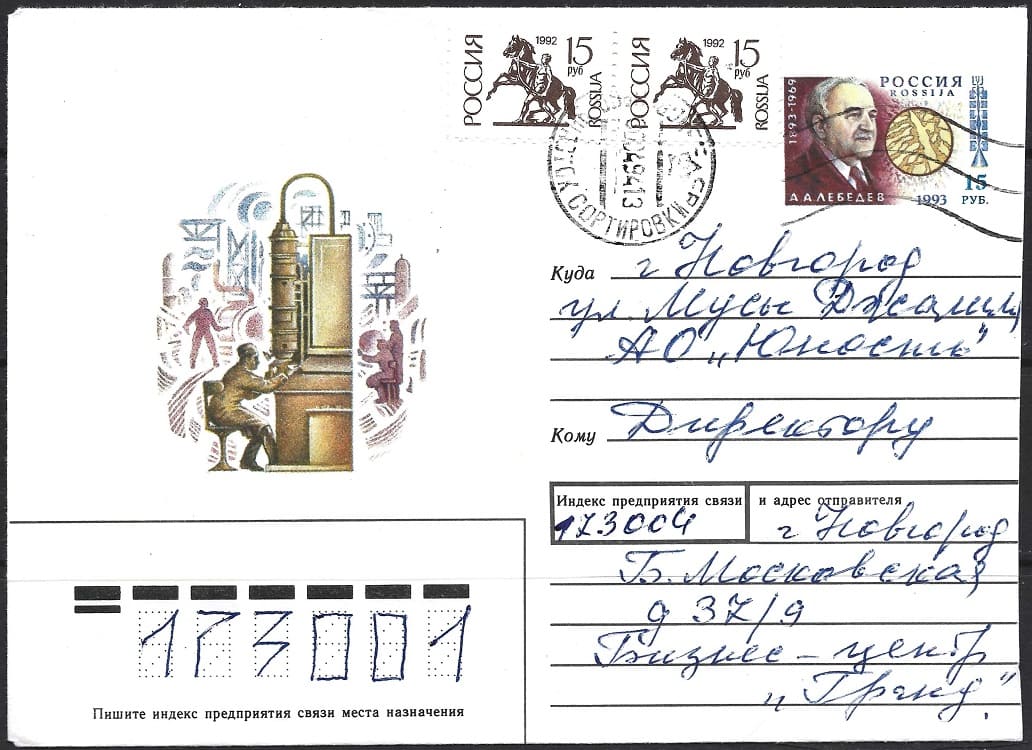 РОССИЯ 1992 15 руб ROSSIJA
РОССИЯ 1992 15 руб ROSSIJA
1893-1969
РОССИЯ
ROSSIJA
15
РУБ.
А.А.ЛЕБЕДЕВ
1993
СОРТИРОВКИ
Куда г Новгород
ул. Мусы Джалиля
АО „Юность"
Кому Директору
Индекс предприятия связи и адрес отправителя
173004 г Новгород
Б. Московская
д 37/9
Бизнес-центр
„Гранд"
173001
Пишите индекс предприятия связи места назначения